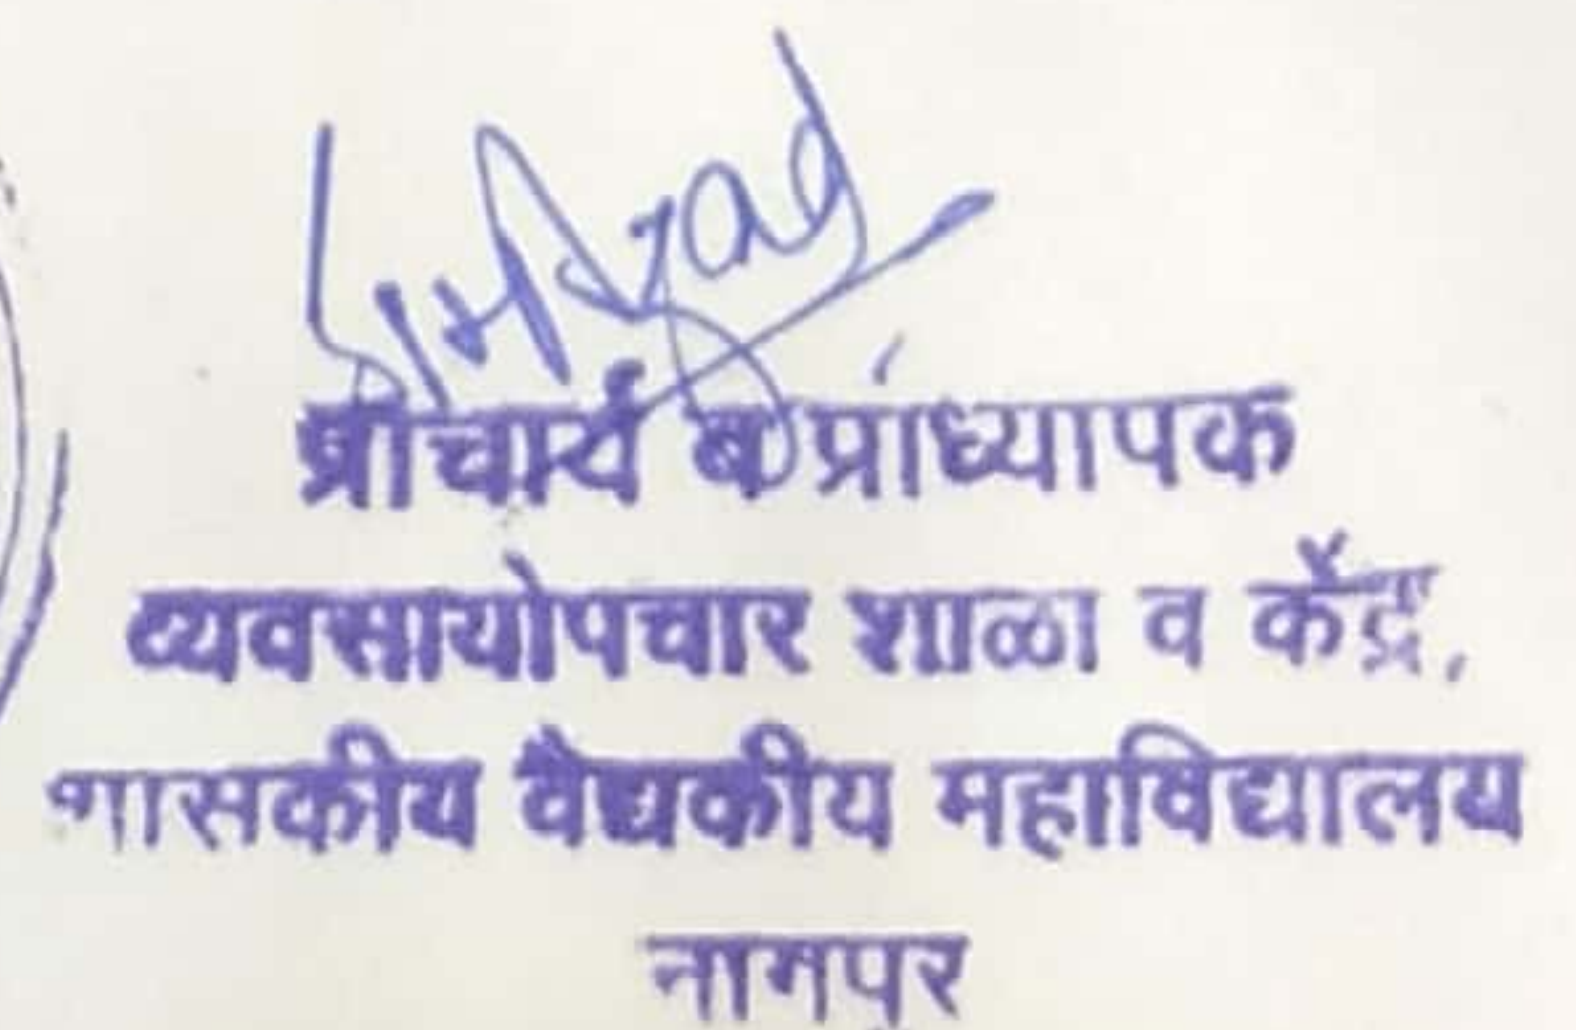 प्राचार्य व प्राध्यापक
व्यवसायोपचार शाळा व केंद्र,
शासकीय वैद्यकीय महाविद्यालय
नागपुर